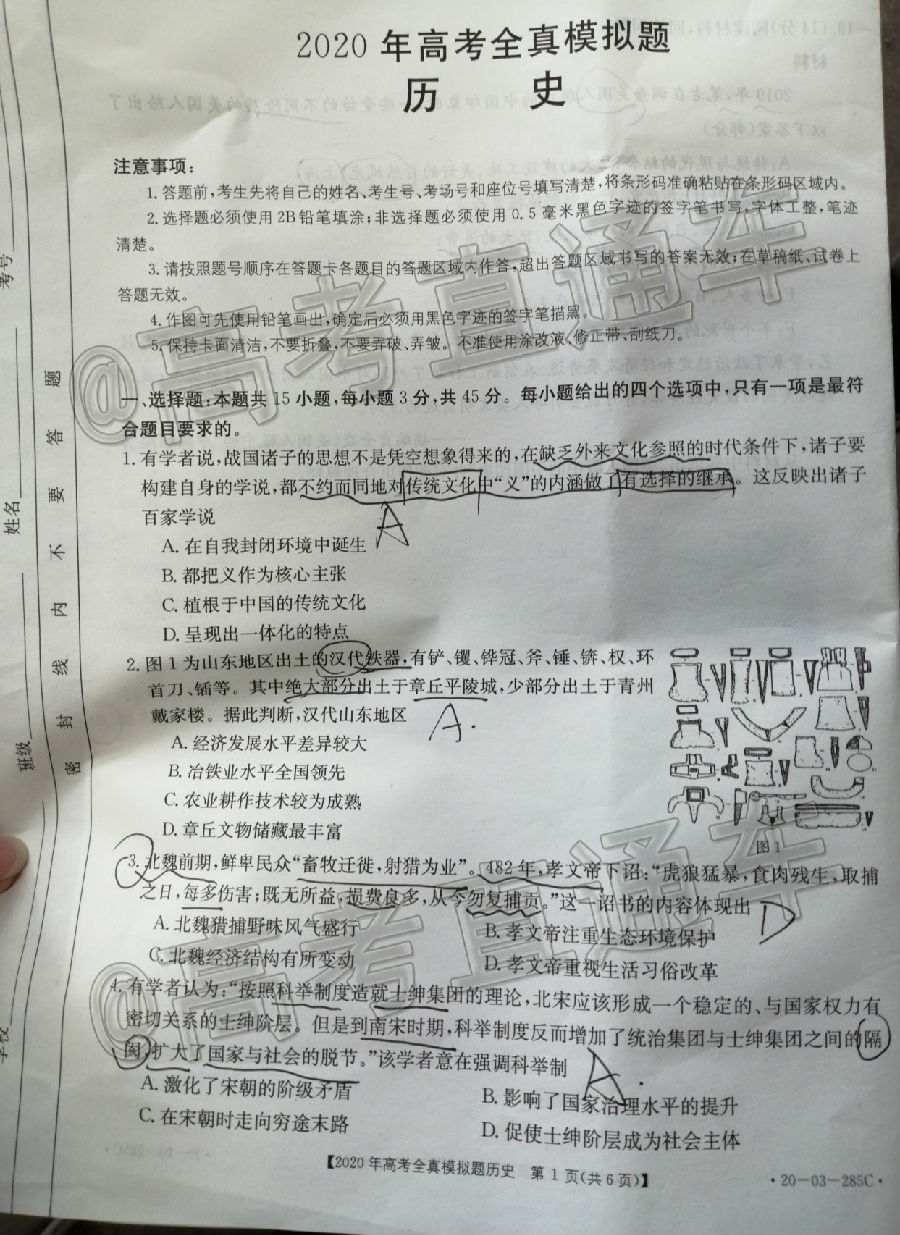 2020年高考全真模拟题
历 史
注意事项:
1.答题前,考生先将自己的姓名、考生号、考场号和座位号填写清楚,将条形码准确粘贴在条形码区域内。
2.选择题必须使用2B铅笔填涂;非选择题必须使用0.5毫米黑色字迹的签字笔书写,字体工整,笔迹
清楚。
3.请按照题号顺序在答题卡各题目的答题区域内作答,超出答题区域书写的答案无效;在草稿纸、试卷上
答题无效。
4.作图可先使用铅笔画出,确定后必须用黑色字迹的签字笔描黑。
5.保持卡面清洁,不要折叠,不要弄破、弄皱。不准使用涂改液、修正带、刮纸刀。
一、选择题:本题共15小题,每小题3分,共45分。每小题给出的四个选项中,只有一项是最符
合题目要求的。
1.有学者说,战国诸子的思想不是凭空想象得来的,在缺乏外来文化参照的时代条件下,诸子要
构建自身的学说,都不约而同地对传统文化中“义”的内涵做了有选择的继承。这反映出诸子
百家学说
A.在自我封闭环境中诞生
A
B.都把义作为核心主张
C.植根于中国的传统文化
D.呈现出一体化的特点
2.图1为山东地区出土的汉代铁器,有铲、䦆、铧冠、斧、锤、锛、权、环
首刀、锸等。其中绝大部分出土于章丘平陵城,少部分出土于青州
戴家楼。据此判断,汉代山东地区
A.
A.经济发展水平差异较大
B.冶铁业水平全国领先
C.农业耕作技术较为成熟
D.章丘文物储藏最丰富
图1
3.北魏前期,鲜卑民众“畜牧迁徙,射猎为业”。482年,孝文帝下诏:“虎狼猛暴,食肉残生,取捕
之日,每多伤害;既无所益,损费良多,从今勿复捕贡。”这一诏书的内容体现出
D
A.北魏猎捕野味风气盛行
B.孝文帝注重生态环境保护
C.北魏经济结构有所变动
D.孝文帝重视生活习俗改革
4.有学者认为:“按照科举制度造就士绅集团的理论,北宋应该形成一个稳定的、与国家权力有
密切关系的士绅阶层。但是到南宋时期,科举制度反而增加了统治集团与士绅集团之间的隔
阂,扩大了国家与社会的脱节。”该学者意在强调科举制
A.
A.激化了宋朝的阶级矛盾
B.影响了国家治理水平的提升
C.在宋朝时走向穷途末路
D.促使士绅阶层成为社会主体
【2020年高考全真模拟题历史 第1页(共6页)】
·20-03-285C·
考号
姓名
班级
学校
密封线内不要答题
@高考直通车
@高考直通车